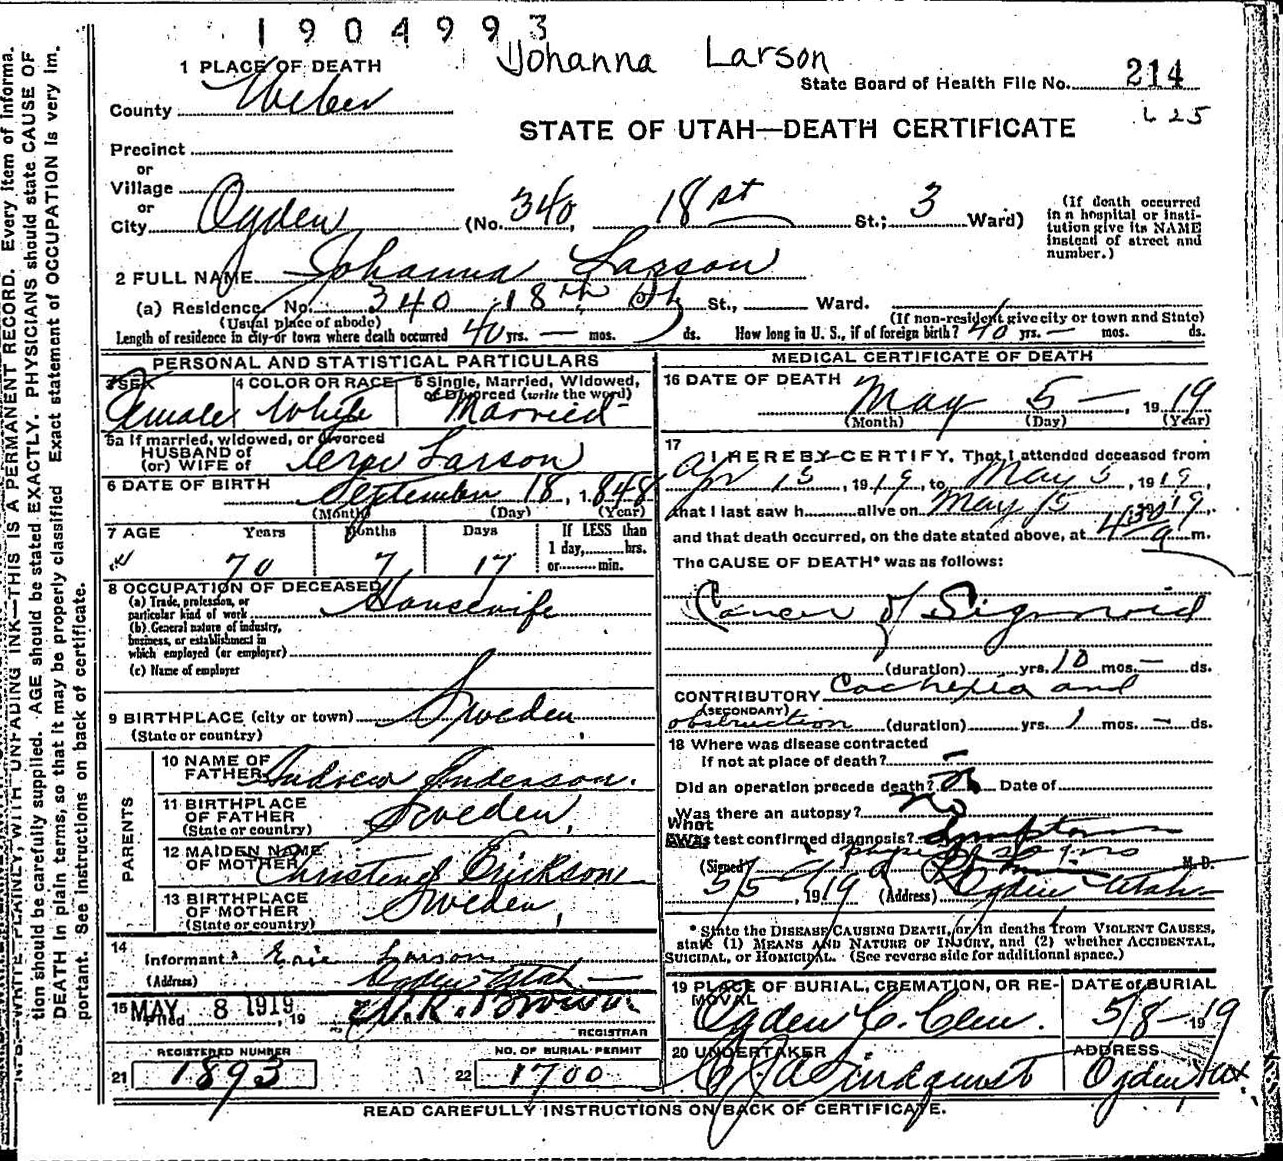 1904993
Johanna Larson
1 PLACE OF DEATH
State Board of Health File No. 214
County Weber
625
STATE OF UTAH—DEATH CERTIFICATE
Precinct
or
Village
or
City Ogden (No. 340, 18 st St.; 3 Ward)
(If death occurred in a hospital or institution give its NAME instead of street and number.)
2 FULL NAME Johanna Larson
(a) Residence. No. 340 18th St St., Ward.
(Usual place of abode) (If non-resident give city or town and State)
Length of residence in city or town where death occurred 40 yrs. — mos. ds. How long in U. S., if of foreign birth? 40 yrs. — mos. ds.
PERSONAL AND STATISTICAL PARTICULARS
3 SEX Female
4 COLOR OR RACE White
5 Single, Married, Widowed, or Divorced (write the word) Married
5a If married, widowed, or divorced
HUSBAND of
(or) WIFE of Larson
6 DATE OF BIRTH September 18, 1848
(Month) (Day) (Year)
7 AGE Years Months Days If LESS than
1 day, hrs.
or min.
70 7 17
8 OCCUPATION OF DECEASED
(a) Trade, profession, or particular kind of work Housewife
(b) General nature of industry, business, or establishment in which employed (or employer)
(c) Name of employer
9 BIRTHPLACE (city or town) Sweden
(State or country)
PARENTS
10 NAME OF FATHER Andrew Anderson.
11 BIRTHPLACE OF FATHER Sweden,
(State or country)
12 MAIDEN NAME OF MOTHER Christine Erickson
13 BIRTHPLACE OF MOTHER Sweden,
(State or country)
14
Informant Eric Larson
(Address) Ogden Utah —
15 MAY 8 1919
Filed , 19
Brown
REGISTRAR
REGISTERED NUMBER
21 1893
NO. OF BURIAL PERMIT
22 1700
MEDICAL CERTIFICATE OF DEATH
16 DATE OF DEATH
May 5 — , 1919
(Month) (Day) (Year)
17
I HEREBY CERTIFY, That I attended deceased from
Apr 15, 1919, to May 5, 1919,
that I last saw h alive on May 5 1919,
and that death occurred, on the date stated above, at 430 a m.
The CAUSE OF DEATH* was as follows:
Cancer of Sigmoid
(duration) yrs. 10 mos. — ds.
CONTRIBUTORY Cachexia and
(SECONDARY)
obstruction (duration) yrs. 1 mos. — ds.
18 Where was disease contracted
If not at place of death? —
Did an operation precede death? Date of
Was there an autopsy? No
What test confirmed diagnosis? symptoms
(Signed) M. D.
5/5, 1919 (Address) Ogden Utah
* State the DISEASE CAUSING DEATH, or in deaths from VIOLENT CAUSES,
state (1) MEANS AND NATURE OF INJURY, and (2) whether ACCIDENTAL,
SUICIDAL, or HOMICIDAL. (See reverse side for additional space.)
19 PLACE OF BURIAL, CREMATION, OR REMOVAL
Ogden C. Cem.
DATE of BURIAL
5/8 — 1919
20 UNDERTAKER
Lindquist
ADDRESS
Ogden Ut
READ CAREFULLY INSTRUCTIONS ON BACK OF CERTIFICATE.
WRITE PLAINLY, WITH UNFADING INK—THIS IS A PERMANENT RECORD. Every item of information should be carefully supplied. AGE should be stated EXACTLY. PHYSICIANS should state CAUSE OF DEATH in plain terms, so that it may be properly classified. Exact statement of OCCUPATION is very important. See instructions on back of certificate.